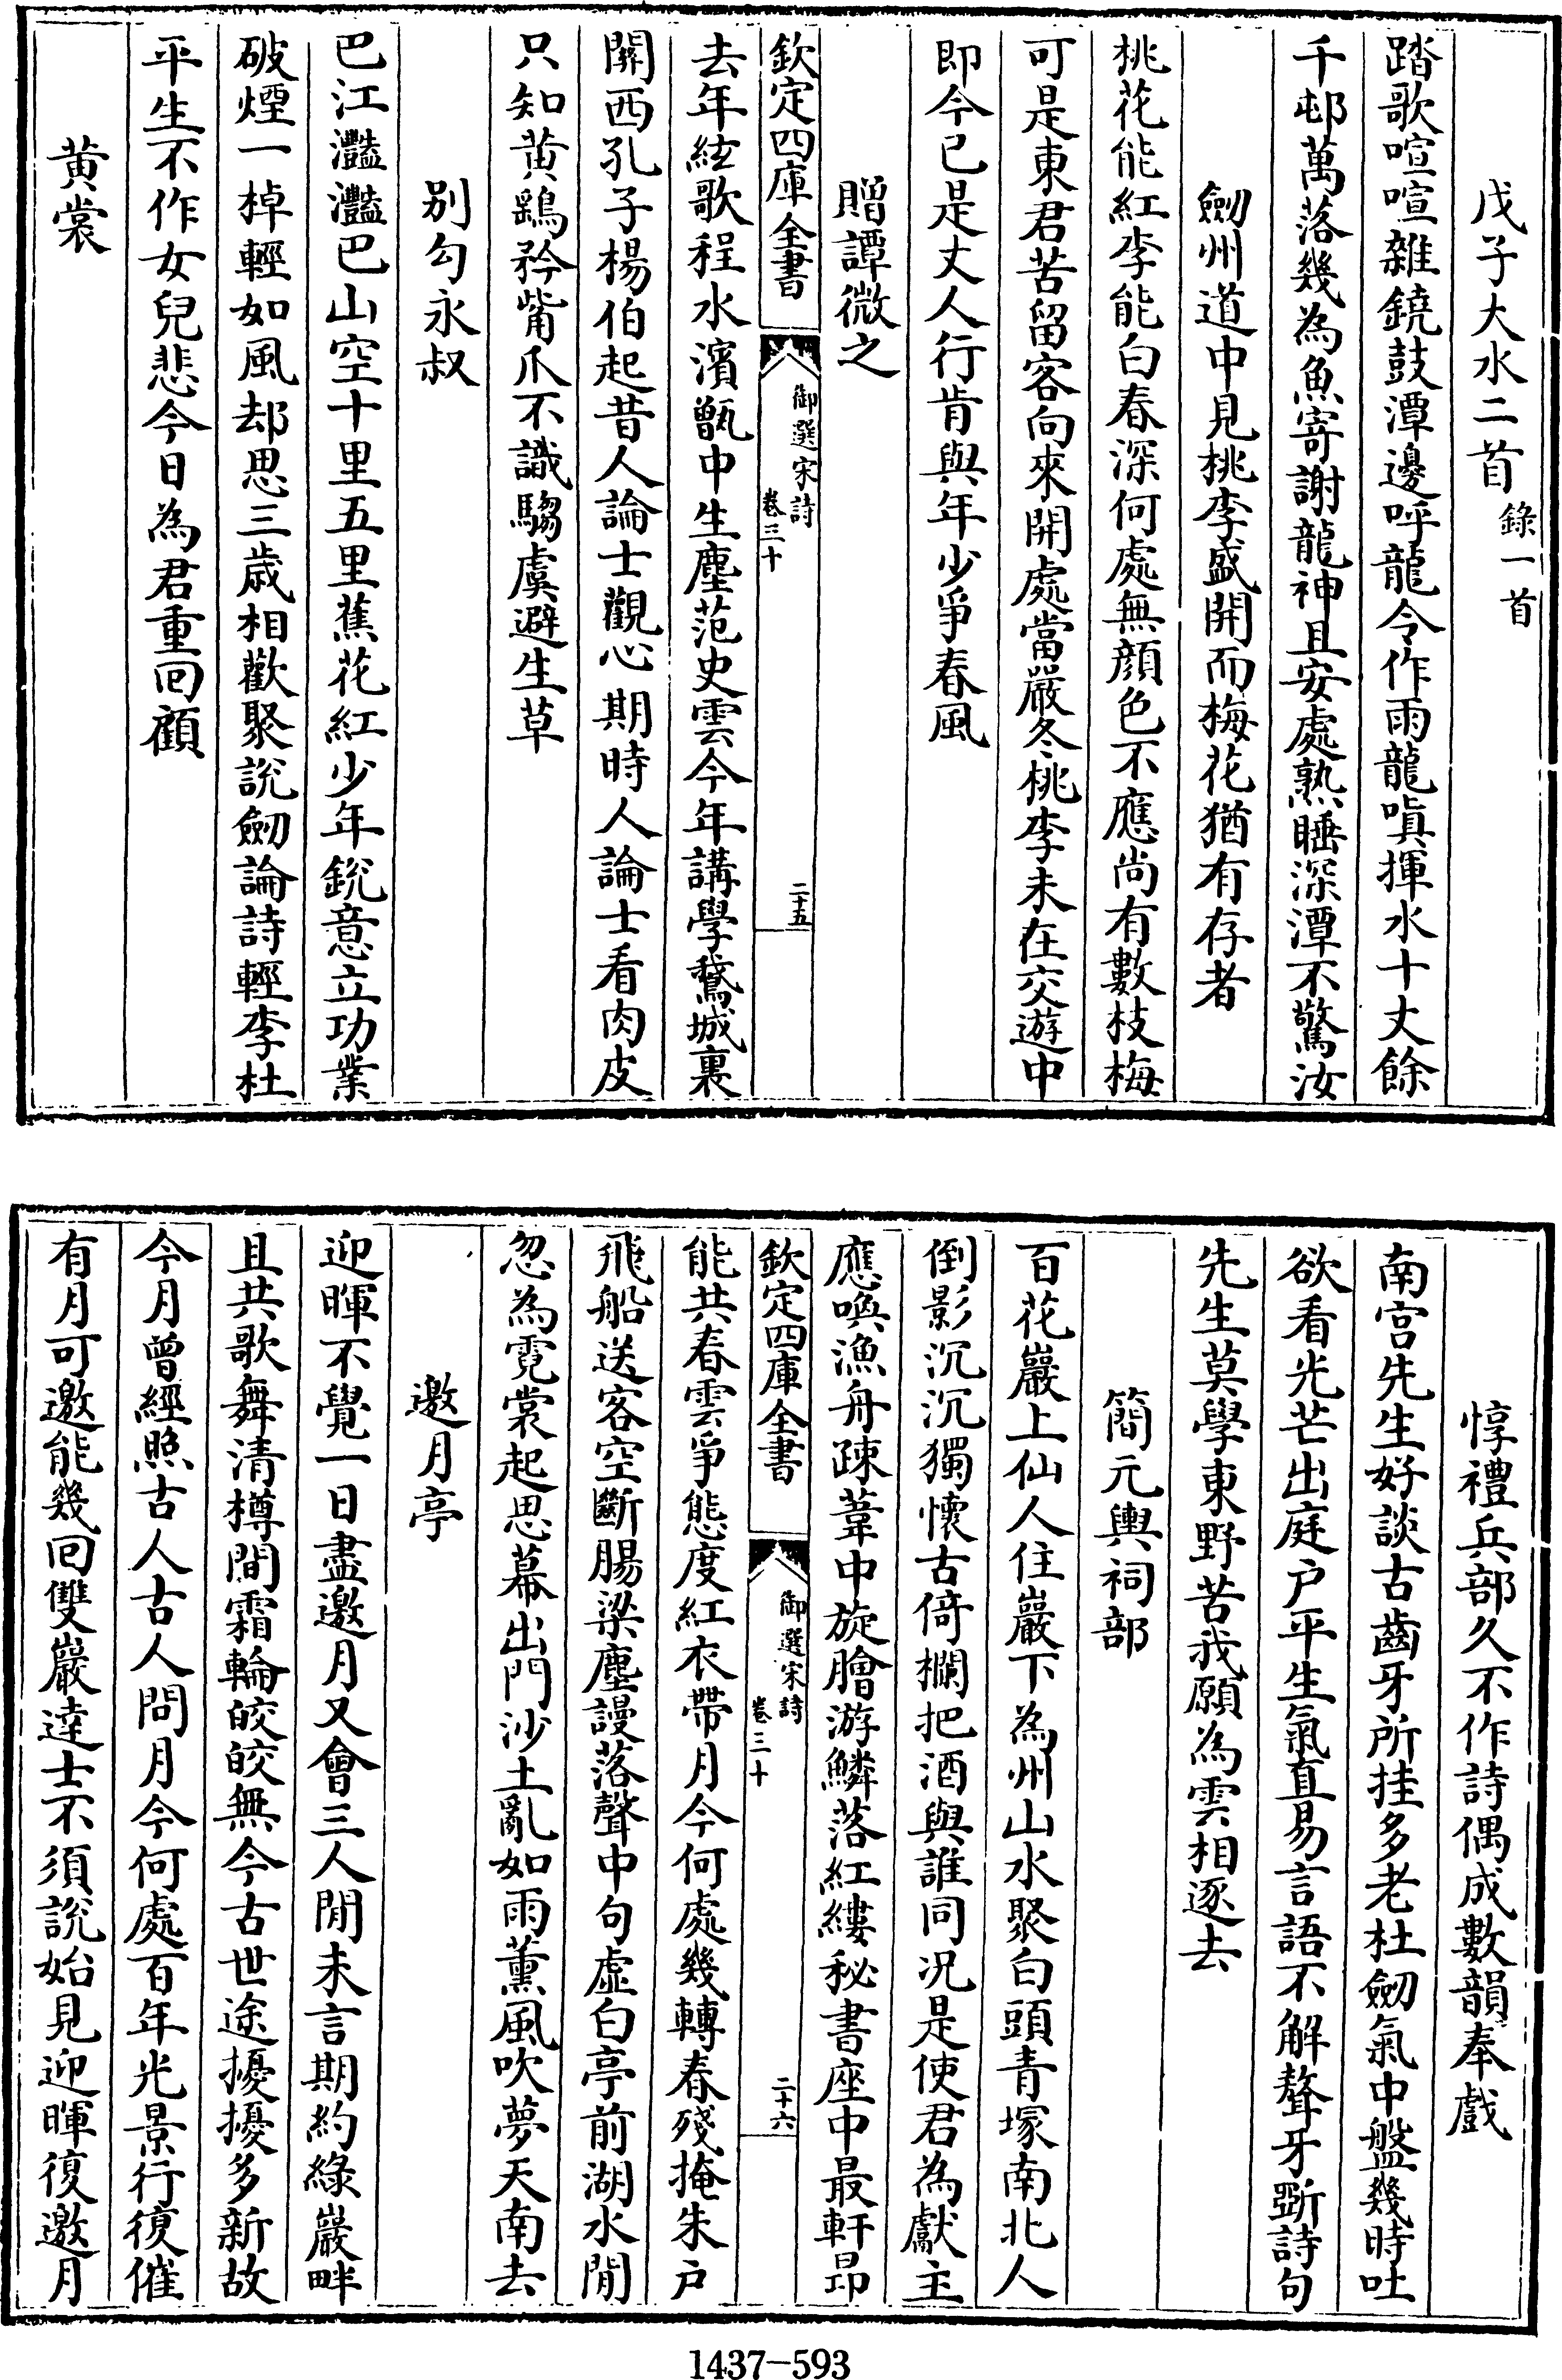 戊子大水二首錄一首
踏歌喧喧雜鐃鼓潭邊呼龍令作雨龍嗔揮水十丈餘
千邨萬落幾為魚寄謝龍神且安處熟睡深潭不驚汝
劒州道中見桃李盛開而梅花猶有存者
桃花能紅李能白春深何處無顔色不應尚有數枝梅
可是東君苦留客向來開處當嚴冬桃李未在交遊中
即今已是丈人行肯與年少爭春風
贈譚微之
欽定四庫全書
御選宋詩
卷三十
二十五
去年絃歌程水濱甑中生塵范史雲今年講學鵞城裏
關西孔子楊伯起昔人論士觀心期時人論士看肉皮
只知黄鷂矜觜爪不識騶虞避生草
别勾永叔
巴江灩灩巴山空十里五里蕉花紅少年銳意立功業
破煙一棹輕如風却思三歲相歡聚說劒論詩輕李杜
平生不作女兒悲今日為君重回顧
黄裳
惇禮兵部久不作詩偶成數韻奉戲
南宫先生好談古齒牙所挂多老杜劒氣中盤幾時吐
欲看光芒出庭户平生氣直易言語不解聱牙斲詩句
先生莫學東野苦我願為雲相逐去
簡元輿祠部
百花巖上仙人住巖下為州山水聚白頭青塚南北人
倒影沉沉獨懷古倚欄把酒與誰同况是使君為獻主
應喚漁舟疎葦中旋膾游鱗落紅縷秘書座中最軒昂
欽定四庫全書
御選宋詩
卷三十
二十六
能共春雲爭態度紅衣帶月今何處幾轉春殘掩朱户
飛船送客空斷腸梁塵謾落聲中句虛白亭前湖水閒
忽為霓裳起思慕出門沙土亂如雨薰風吹夢天南去
邀月亭
迎暉不覺一日盡邀月又會三人閒未言期約綠巖畔
且共歌舞清樽間霜輪皎皎無今古世途擾擾多新故
今月曾經照古人古人問月今何處百年光景行復催
有月可邀能幾回雙巖達士不須說始見迎暉復邀月
1437-593